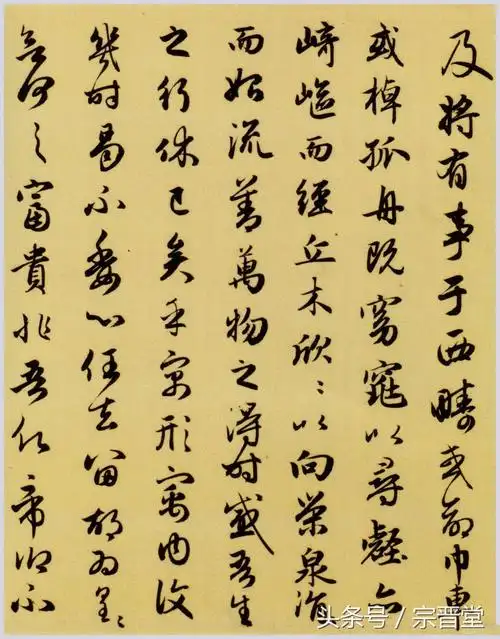 及將有事于西疇或命巾車
或棹孤舟既窈窕以尋壑亦
崎嶇而經丘木欣〻以向榮泉涓
而始流善萬物之得時感吾生
之行休已矣乎寓形寓內復
幾時曷不委心任去留胡為皇〻
何之富貴非吾願帝鄉不
头条号/宗晋堂